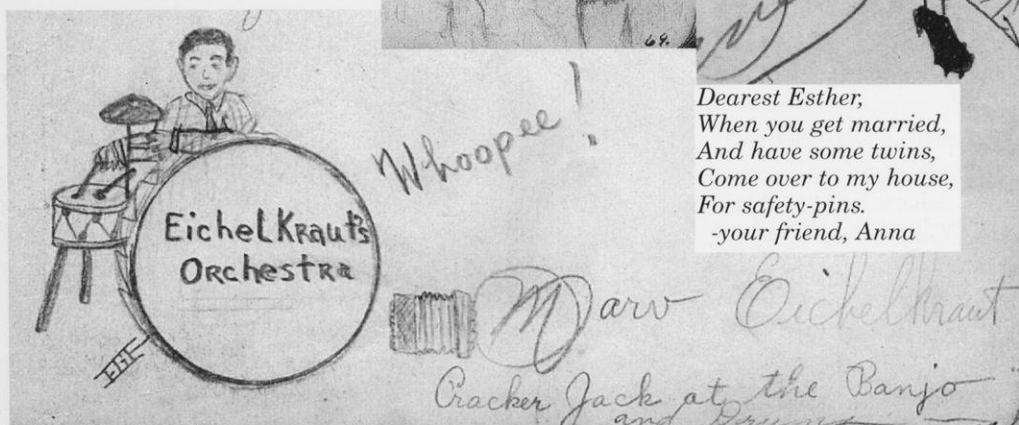 64.
Whoopee!
Dearest Esther,
When you get married,
And have some twins,
Come over to my house,
For safety-pins.
-your friend, Anna
EichelKraut's
Orchestra
Marv Eichelkraut
Cracker Jack at the Banjo
and Drums